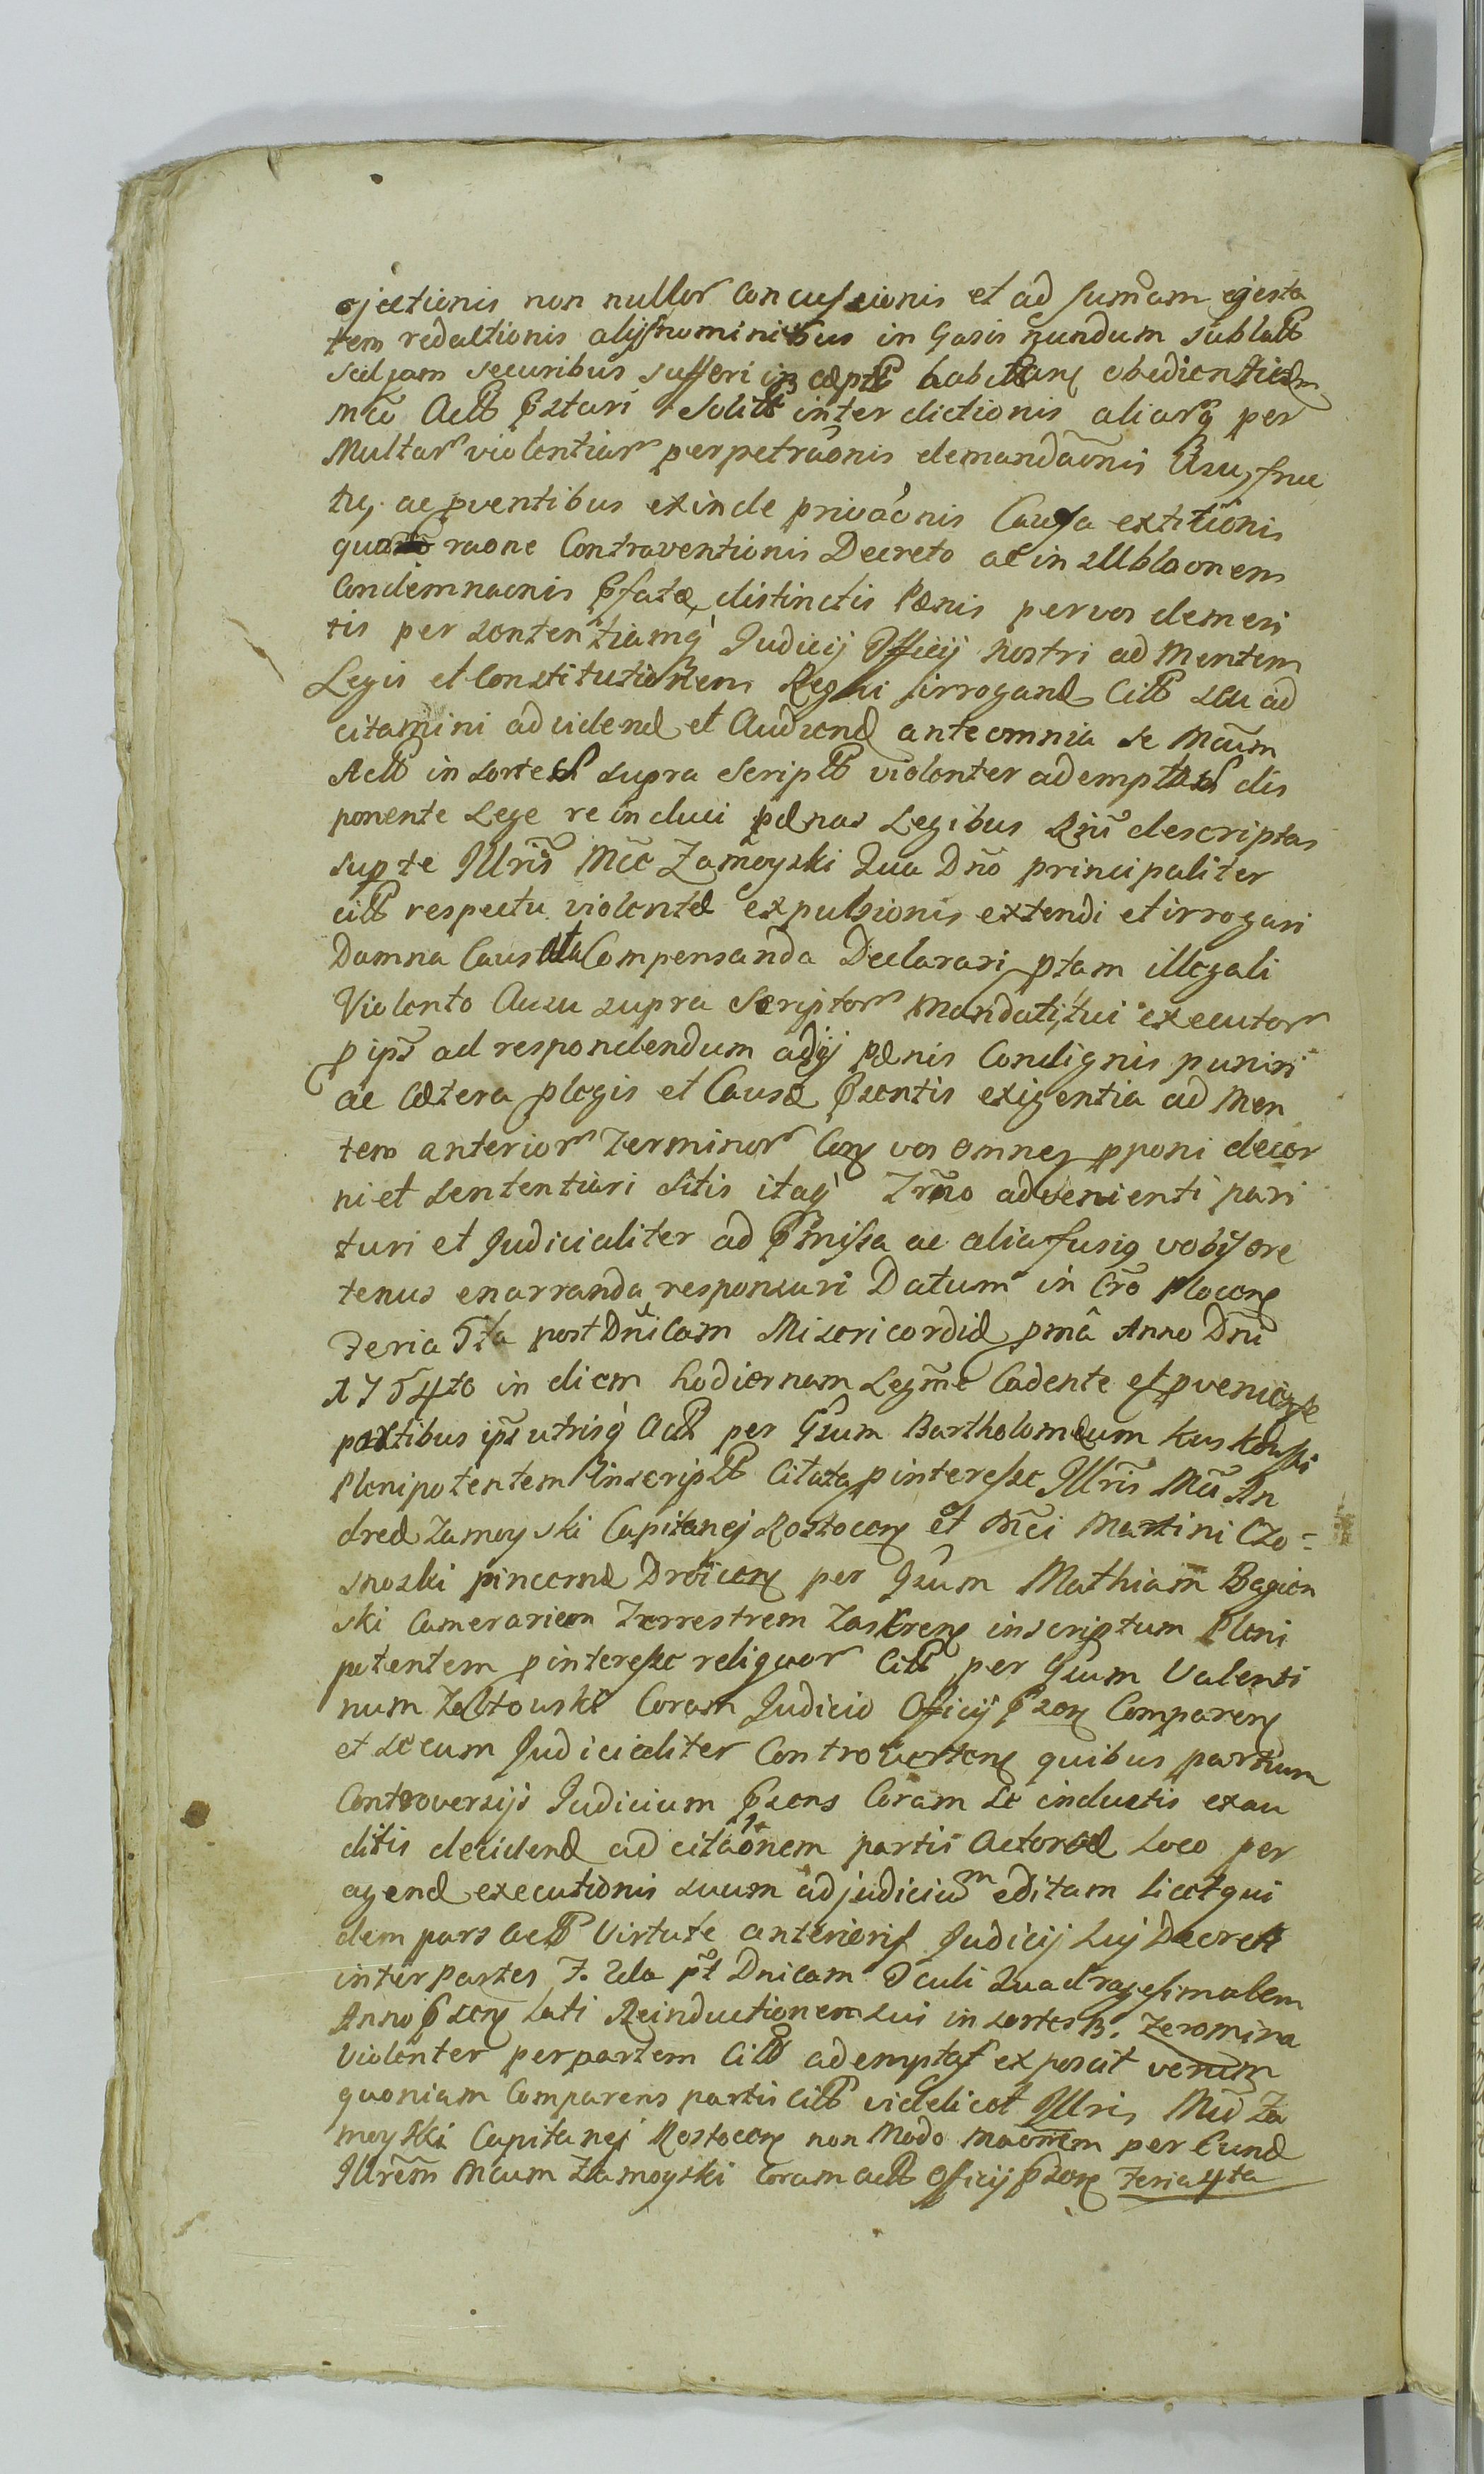 ejectionis non nullor concussionis et ad sumam egesta
tem redactionis alijs hominibus in Garis
securibus sufferi in cæptt habitan obedientiam
Mco Actt pstari solitt inter dictionis aliarq per
Multar violentiar perpetraonis demandaonis Usu fruc
tu, ac pventibus exinde privaonis Causa extitionis
raone Contraventionis Decreto ac in
Condemnaonis pfatæ distinctis Pænis per vos demeri
tis per sententiamq Judicij Officij Nostri ad Mentem
Legis et Constitutionem Regni irrogand Citt
citamini ad vidend et Audiend ante omnia se Mcum
Actt in sortes supra scriptt violenter ademptas dis
ponente Lege re induci pænas Legibus Rni descriptas
sup te Illris Mcc Zamoyski Qua Dno principaliter
citt respectu violentæ expulsionis extendi et irrogari
Damna Causata Compensanda Declarari ptam illegali
Violento Ausu supra scriptor Mandati tui executor
p ips ad respondendum adigi pænis Condignis puniri
ac Cætera p legis et Causæ psentis exigentia ad Men
tem anterior Terminor Con vos omnes pponi decer
ni et sententiari sitis itaq Trno advenienti pari
turi et Judicialiter ad pmissa ac alia fusig vobis ore
tenus enarranda responsuri Datum in Cro Plocen
Feria 5ta post Dnicam Misericordiæ pmâ Anno Dni
1754to in diem hodiernam Legme Cadente et pveniente
partibus ips utrisq Actt per Gsum Bartholomæum
Plenipotentem inscriptt Citata p interesse Illris Mci An
dreæ Zamoyski Capitanej Rostocen et Mci Martini Czo=
snoski pincernæ Drôicen per Gsum Mathiam Bagien
ski Camerariem Terrestrem Zaskren inscriptum Pleni
potentem p interesse reliquor Citt per Gsum Valenti
num Zołtowski Coram Judicio Officij psen Comparen
et secum Judicialiter Controverten quibus partium
Controversijs Judicium psens Coram se inductis exau
ditis decidend ad citaonem partis Actoreæ Loco per
agend executionis suum ad judicium editam licet qui
dem pars actt Virtute anterioris Judicij sui Decreti
inter Partes F. 2da pt Dnicam Oculi Quadragesimalem
Anno psen Lati Reinductionem sui in sortes B. Zeromina
Violenter per partem Citt ademptas exposcit verum
quoniam Comparens partis Citt videlicet Illris Mci Za
moyski Capitanej Rostocen non Modo maonem per Eund
Illrem Mcum Zamoyski Coram actt Officij psen Feria 4ta